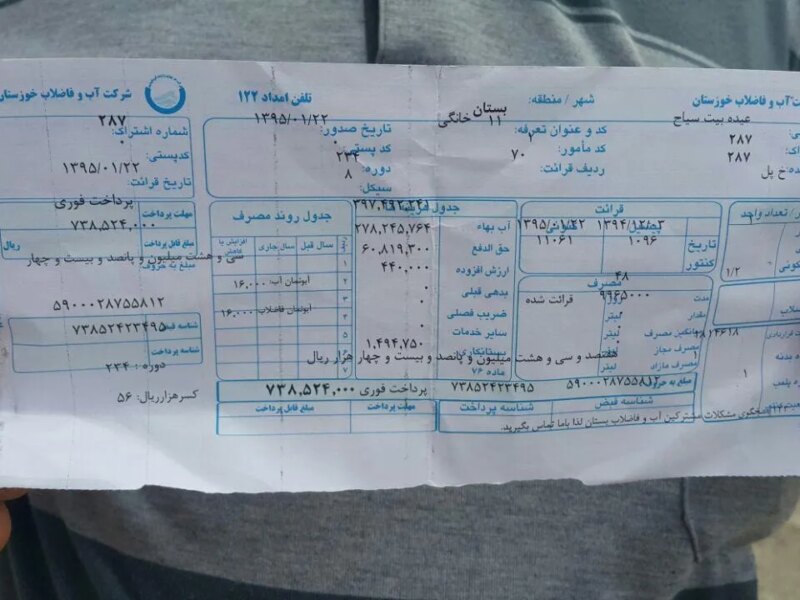 شرکت آب و فاضلاب خوزستان
شهر / منطقه: بستان
تلفن امداد ۱۲۲
شرکت آب و فاضلاب خوزستان
عبده بیت سیاح
۲۸۷
۲۸۷
خ پل
کد و عنوان تعرفه: ۱۱ خانگی
کد مأمور: ۱
ردیف قرائت: ۷۰
تاریخ صدور: ۱۳۹۵/۰۱/۲۲
کد پستی: ۰
دوره: ۲۳۴
سیکل: ۸
۲۸۷
شماره اشتراک:
کدپستی: ۰
تاریخ قرائت: ۱۳۹۵/۰۱/۲۲
تعداد واحد
۱/۲
قرائت
پیشین ۱۳۹۴/۱۲/۰۳
کنونی ۱۳۹۵/۰۱/۲۲
تاریخ
کنتور ۱۰۹۶ ۱۱۰۶۱
مصرف
مدت ۴۸ روز
مقدار ۹۹۶۵۰۰۰ لیتر
قرائت شده
میانگین مصرف لیتر
مصرف مجاز
مصرف مازاد لیتر
آب بهاء ۳۹۷,۴۹۲,۲۴۰
حق الدفع ۲۷۸,۲۴۵,۷۶۴
ارزش افزوده ۶۰,۸۱۹,۳۰۰
بدهی قبلی ۴۴۰,۰۰۰
ضریب فصلی ۰
سایر خدمات ۰
بستانکاری ۰
ماده ۷۶ ۱,۴۹۴,۷۵۰
جدول روند مصرف
سال قبل سال جاری افزایش یا کاهش
۱
۲ آبونمان آب: ۱۶,۰۰۰
۳
۴ آبونمان فاضلاب: ۱۶,۰۰۰
۵
۷
مهلت پرداخت پرداخت فوری
مبلغ قابل پرداخت ۷۳۸,۵۲۴,۰۰۰ ریال
مبلغ به حروف
سی و هشت میلیون و پانصد و بیست و چهار
۵۹۰۰۰۲۸۷۵۵۸۱۲
شناسه قبض
۷۳۸۵۲۴۲۳۴۹۵
شناسه پرداخت
دوره : ۲۳۴
کسرهزارریال: ۵۶
هفتصد و سی و هشت میلیون و پانصد و بیست و چهار هزار ریال
مبلغ به حروف
۵۹۰۰۰۲۸۷۵۵۸۱۲
۷۳۸۵۲۴۲۳۴۹۵
پرداخت فوری ۷۳۸,۵۲۴,۰۰۰
شناسه قبض
شناسه پرداخت
مهلت پرداخت
مبلغ قابل پرداخت
مشکلات مشترکین آب و فاضلاب بستان لذا باما تماس بگیرید.